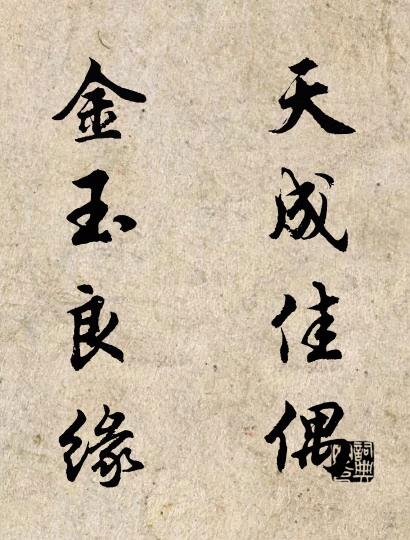 天成佳偶
金玉良缘